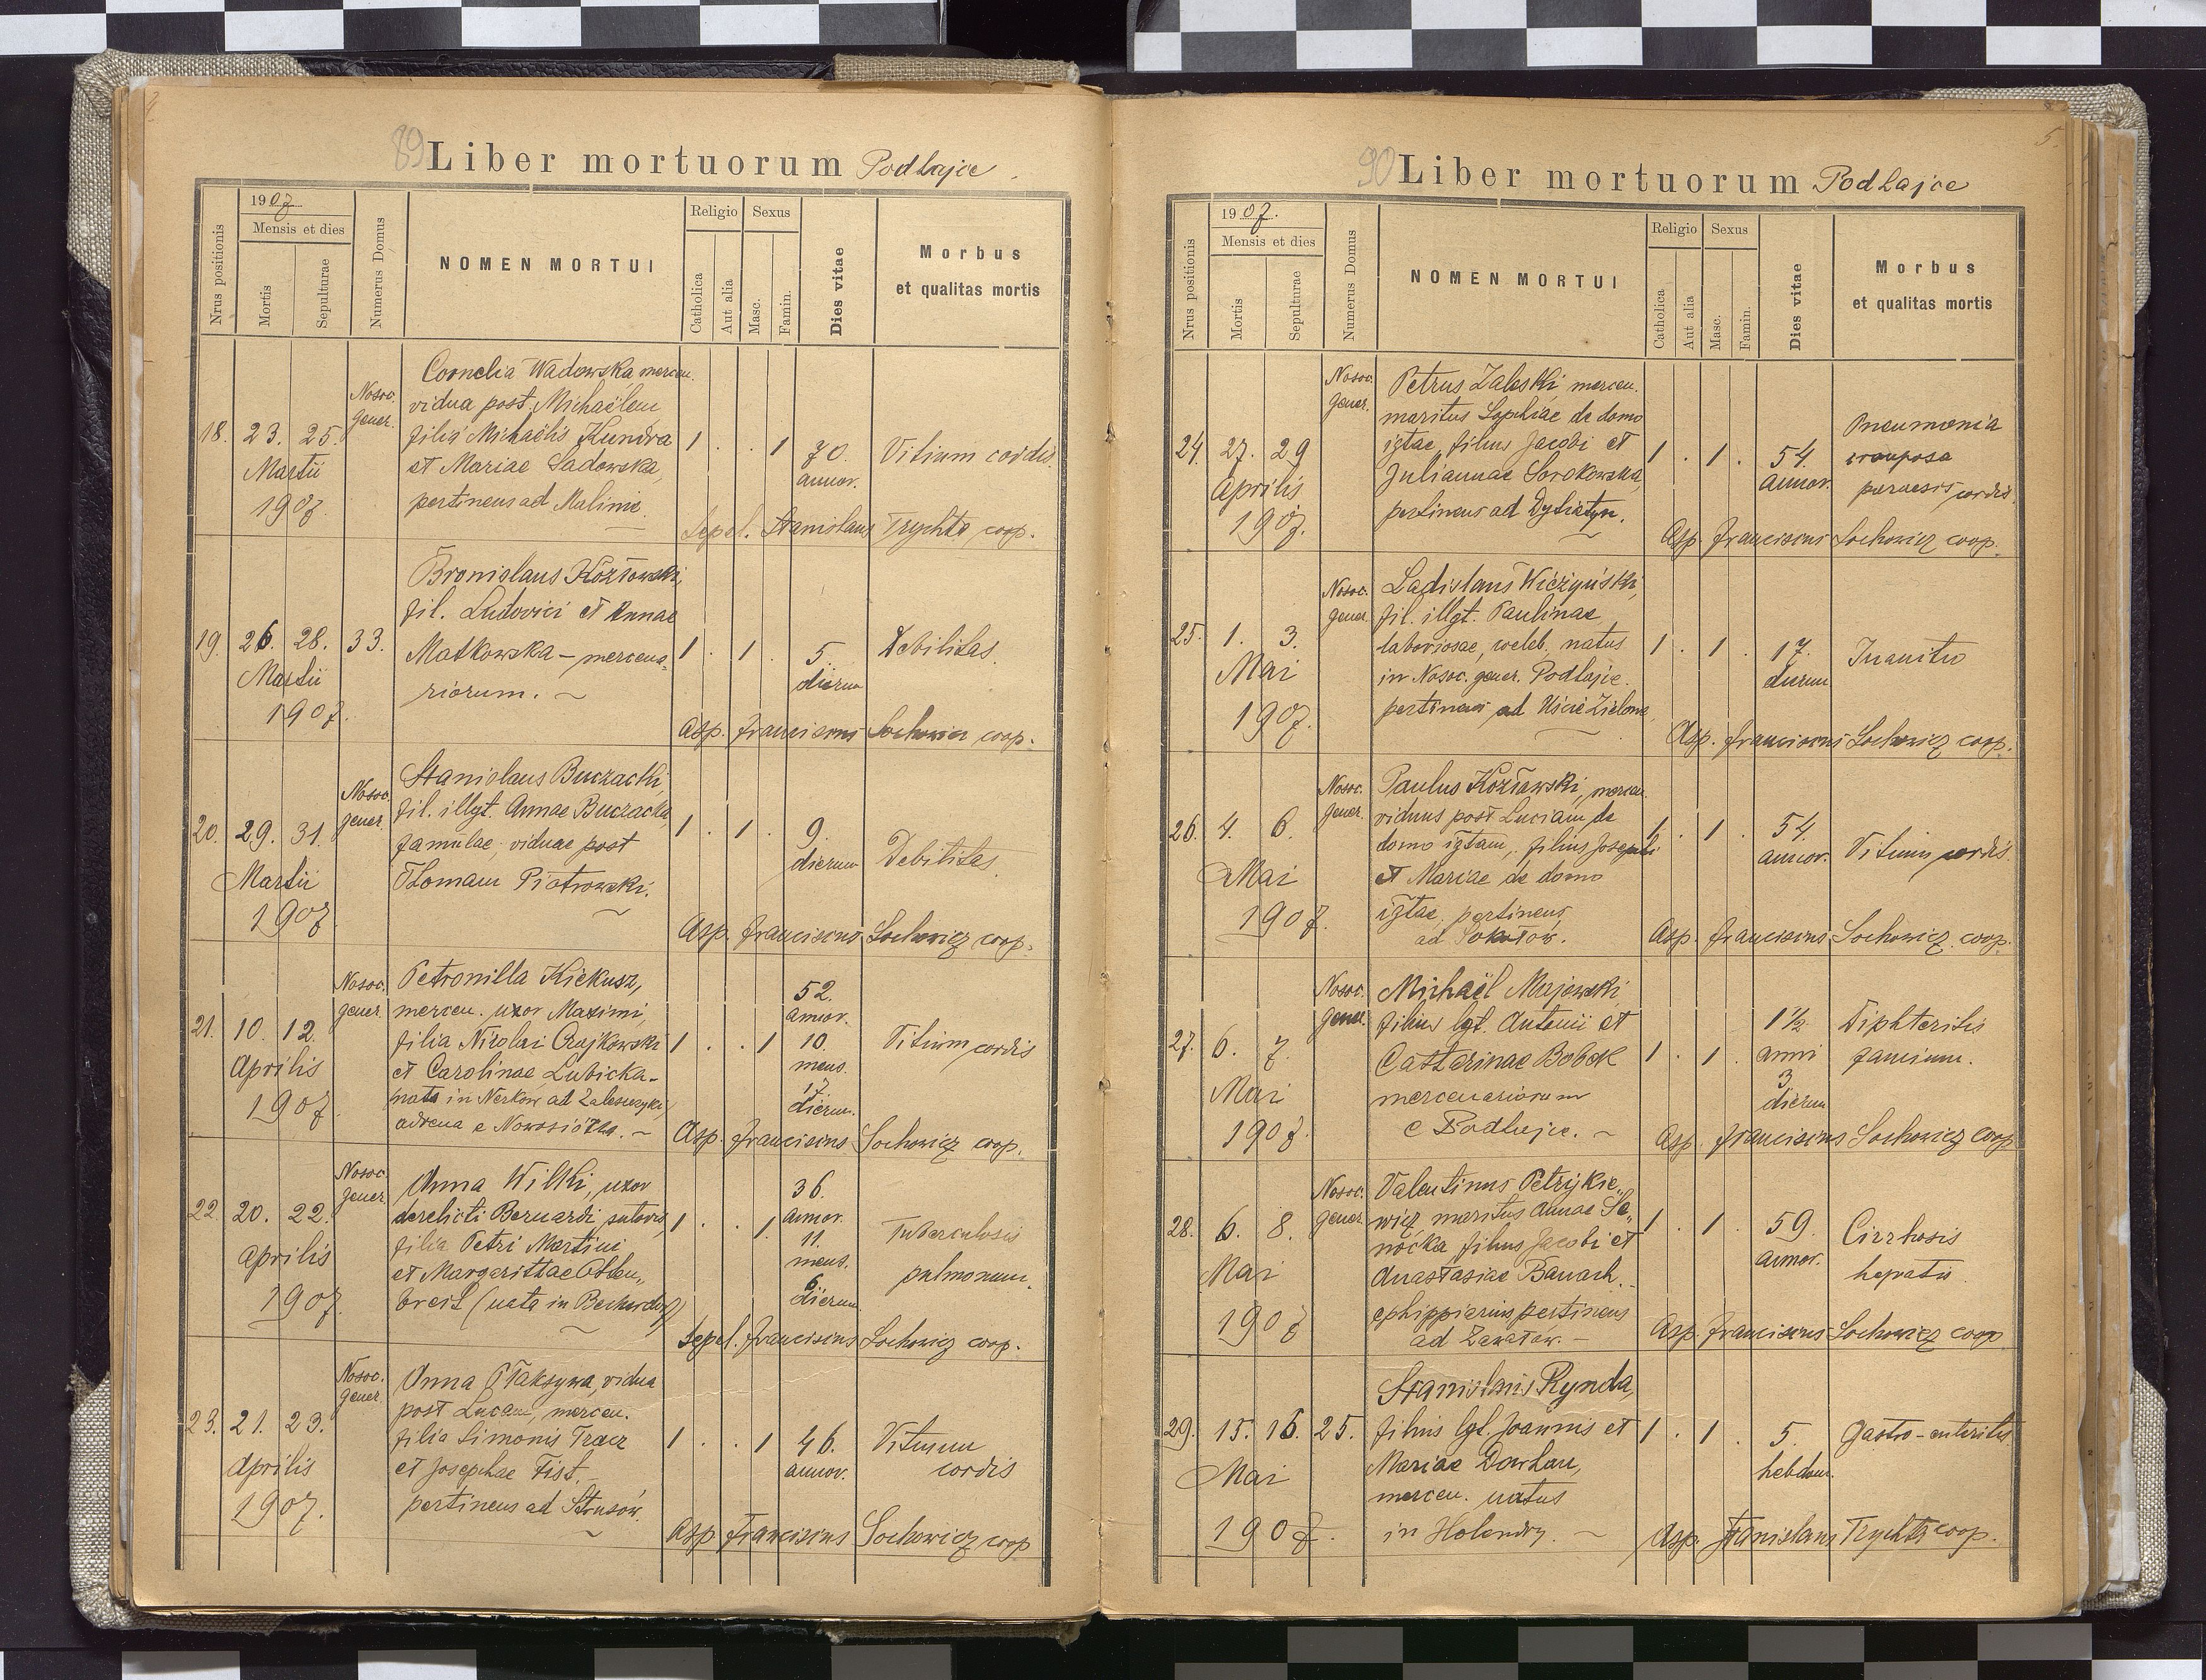 89 Liber mortuorum Podhajce
1907
Mensis et dies
Religio
Sexus
Nrus positionis
Mortis
Sepulturae
Numerus Domus
NOMEN MORTUI
Catholica
Aut alia
Masc.
Famin.
Dies vitae
Morbus
et qualitas mortis
Nosoc.
gener.
Cornelia Wadowska mercen.
vidua post Michaëlem
18. 23. 25. filia Michaëlis Kundra 1 . . 1 70. Vitium cordis.
Martii et Mariae Sadowska, annor.
1907. pertinens ad Malinie.
Sepel. Stanislaus Trychta coop.
Bronislaus Kozłowski,
fil. Ludovici et Annae
19. 26. 28. 33. Matkowska – mercena- 1 . 1 . 5 Debilitas.
Martii riorum. dierum
1907.
Asp. Franciscus Sochowicz coop.
Nosoc.
gener.
Stanislaus Buczacki,
fil. illgt. Annae Buczacka,
20. 29. 31. famulae, viduae post 1 . 1 . 9. Debilitas.
Martii Thomam Piotrowski. dierum
1907.
Asp. Franciscus Sochowicz coop.
Nosoc.
gener.
Petronilla Kiekusz, 52.
mercen. uxor Maximi, annor.
21. 10. 12. filia Nicolai Czajkowski 1 . . 1 10. Vitium cordis
Aprilis et Carolinae Lubicka- mens.
1907. nata in 17 dierum.
advena e Nowosiółka.
Asp. Franciscus Sochowicz coop.
Nosoc.
gener.
Anna Wilki, uxor 36.
derelicti Bernardi, sutoris, annor.
22. 20. 22. filia Petri Martini 1 . . 1. 11. Tuberculosis
Aprilis et Margarithae mens. pulmonum.
1907. breit (nata in 6. dierum
Sepel. Franciscus Sochowicz coop.
Nosoc.
gener.
Anna Płaksywa, vidua
post Lucam, mercen.
23. 21. 23. filia Simonis Tracz 1 . . 1 46. Vitium
Aprilis et Josephae Fist. annor. cordis
1907. pertinens ad Strusów.
Asp. Franciscus Sochowicz coop
5.
90 Liber mortuorum Podhajce
1907.
Mensis et dies
Religio
Sexus
Nrus positionis
Mortis
Sepulturae
Numerus Domus
NOMEN MORTUI
Catholica
Aut alia
Masc.
Famin.
Dies vitae
Morbus
et qualitas mortis
Nosoc.
gener.
Petrus Zaleski, mercen.
maritus Sophiae de domo Pneumonia
24. 27. 29 filius Jacobi et 1 . 1 . 54. crouposa
Aprilis Juliannae Sorokowska, annor. cordis.
1907. pertinens ad Dytiatyn.
Asp. Franciscus Sochowicz coop.
Nosoc.
gener.
Ladislaus
fil. illgt. Paulinae,
25. 1. 3. laboriosae, coeleb. natus 1 . 1 . 17.
Mai in Nosoc. gener. Podhajce. dierum
1907. pertinens ad Uście Zielone.
Asp. Franciscus Sochowicz coop.
Nosoc.
gener.
Paulus Kozławski, mercen.
viduus post Luciam de
26. 4. 6. domo filius Josephi 1. . 1 . 54 Vitium cordis.
Mai et Mariae de domo annor.
1907. pertinens
ad Sokołów.
Asp. Franciscus Sochowicz coop.
Nosoc.
gener.
Michaël Majewski,
filius lgt. Antonii et 1½ Diphteritis
27. 6. 7. Catharinae Bobek 1 . 1 . anni faucium.
Mai mercenariorum 3
1907. e Podhajce. dierum
Asp. Franciscus Sochowicz coop
Nosoc.
gener.
Valentinus Petrykie„
wicz maritus Annae Se„
28. 6. 8. filius Jacobi et 1 . 1 . 59. Cirrhosis
Mai Anastasiae Banach. annor. hepatis.
1907 ephippiarius pertinens
ad Zawałów.
Asp. Franciscus Sochowicz coop
Stanislaus Rynda,
29. 15. 16. 25. filius lgt. Joannis et 1 . 1 . 5. Gastro-enteritis.
Mai Mariae hebdom.
mercen. natus
1907. in Holendry.
Asp. Stanislaus Trychta coop.